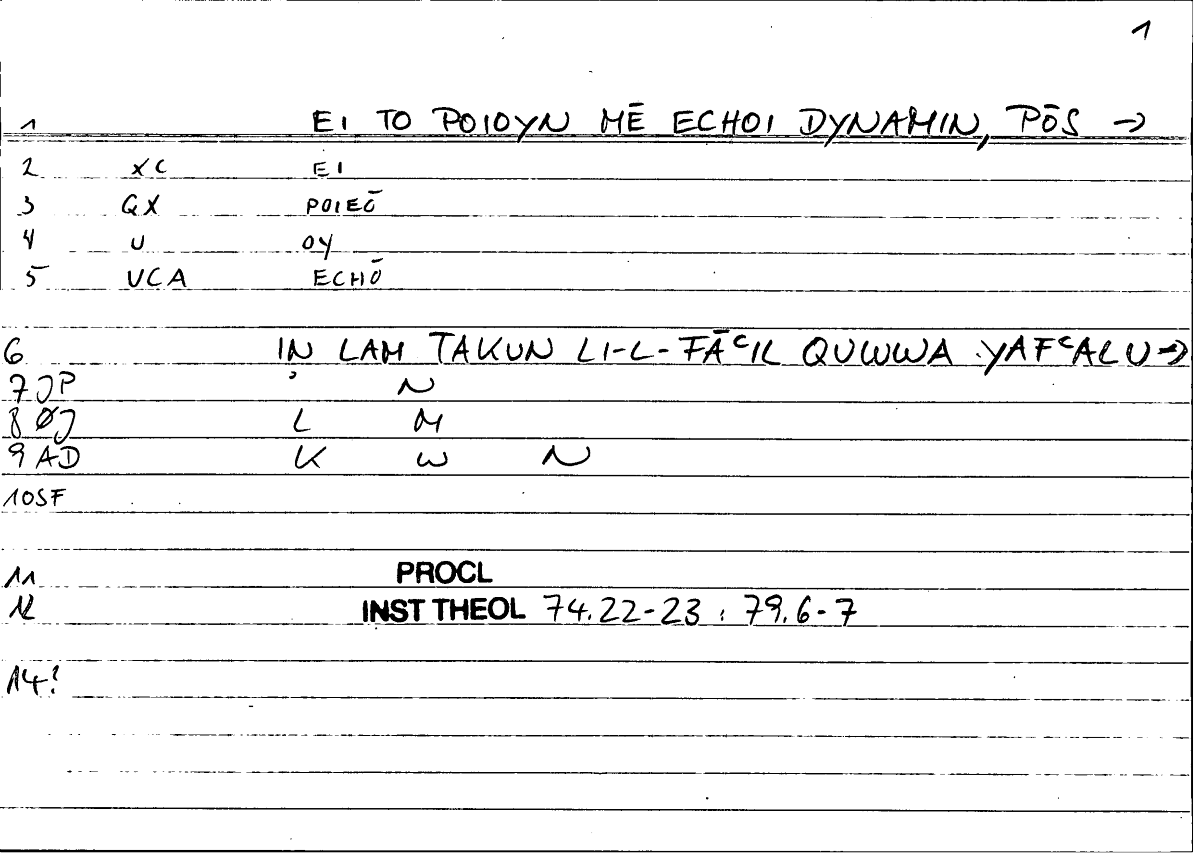 1
1 EI TO POIOYN MĒ ECHOI DYNAMIN, PŌS →
2 XC EI
3 GX POIEŌ
4 U OY
5 UCA ECHŌ
6 IN LAM TAKUN LI-L-FĀᶜIL QUWWA YAFᶜALU →
7 JP ʾ N
8 ØJ L M
9 AD K W N
10 SF
11 PROCL
12 INST THEOL 74.22-23 : 79.6-7
14?